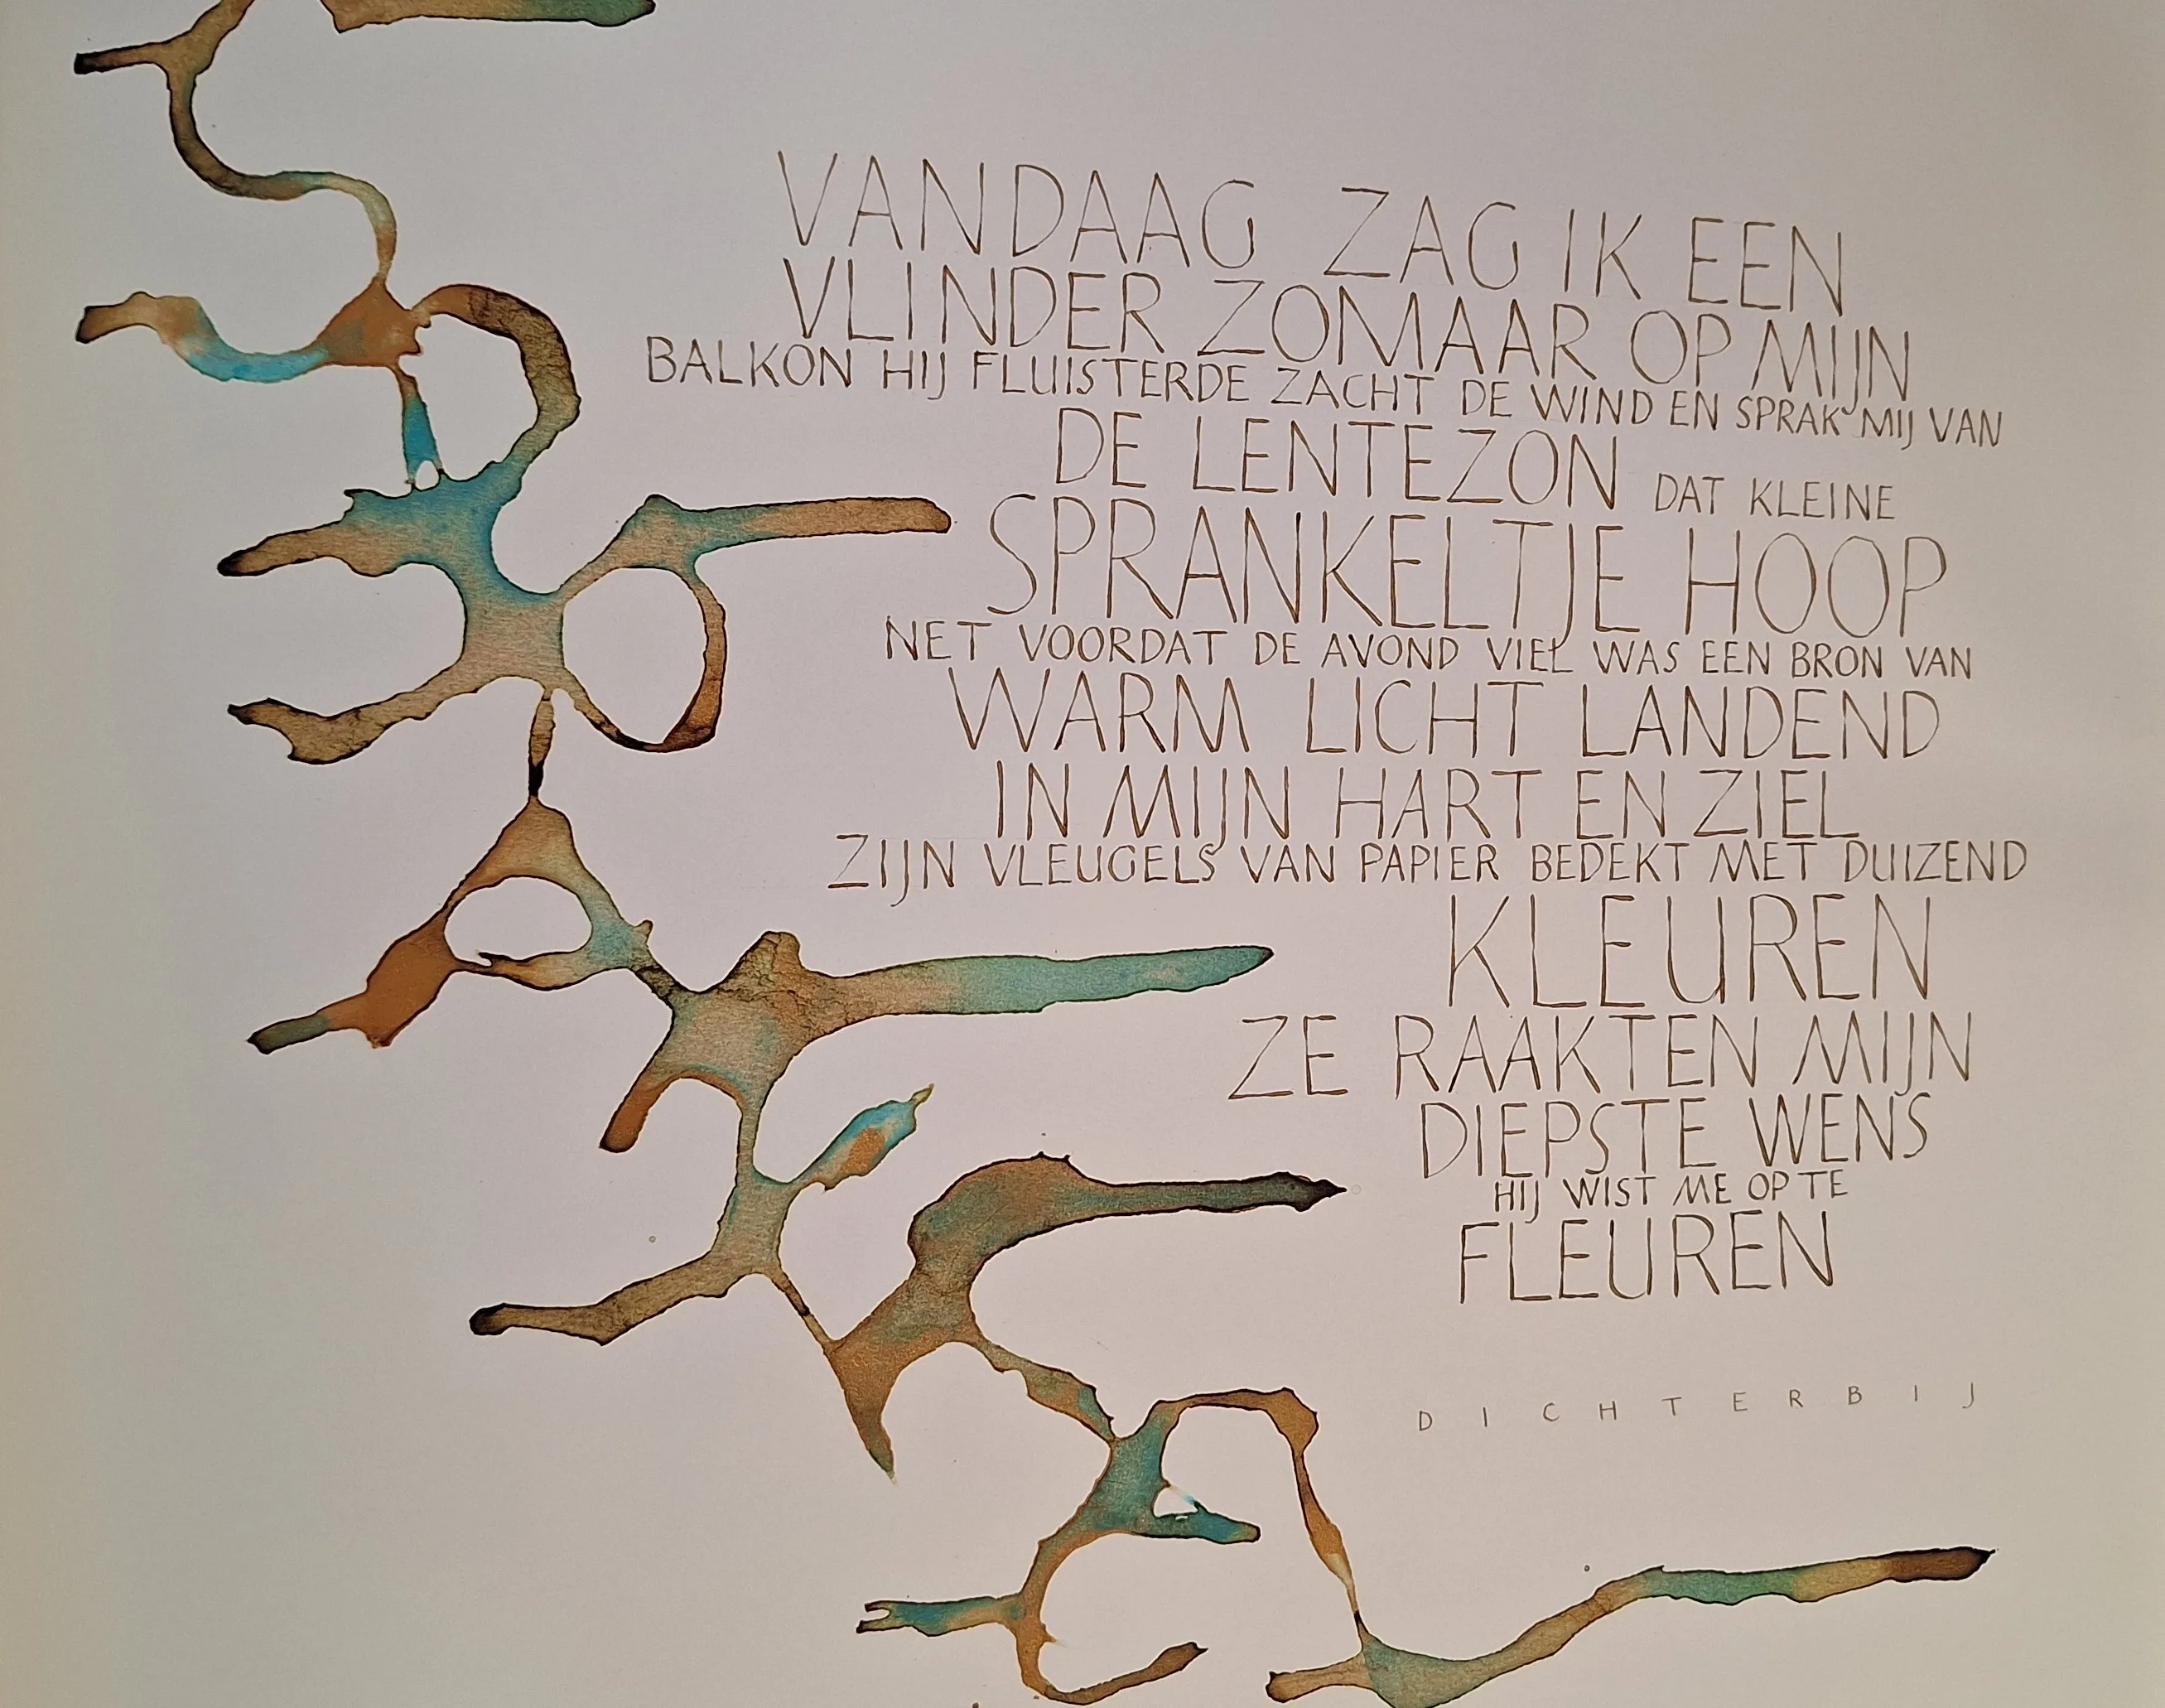 VANDAAG ZAG IK EEN
VLINDER ZOMAAR OP MIJN
BALKON HIJ FLUISTERDE ZACHT DE WIND EN SPRAK MIJ VAN
DE LENTEZON DAT KLEINE
SPRANKELTJE HOOP
NET VOORDAT DE AVOND VIEL WAS EEN BRON VAN
WARM LICHT LANDEND
IN MIJN HART EN ZIEL
ZIJN VLEUGELS VAN PAPIER BEDEKT MET DUIZEND
KLEUREN
ZE RAAKTEN MIJN
DIEPSTE WENS
HIJ WIST ME OP TE
FLEUREN
DICHTERBIJ